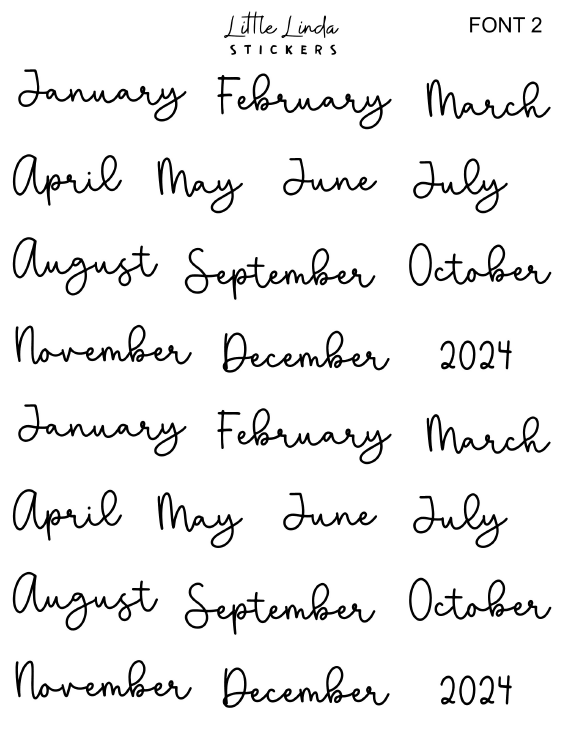 Little Linda
STICKERS
FONT 2
January February March
April May June July
August September October
November December 2024
January February March
April May June July
August September October
November December 2024